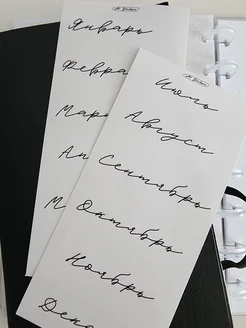 Январь
Февра
Мар
Ап
М
Июль
Август
Сентябрь
Октябрь
Ноябрь
Дека